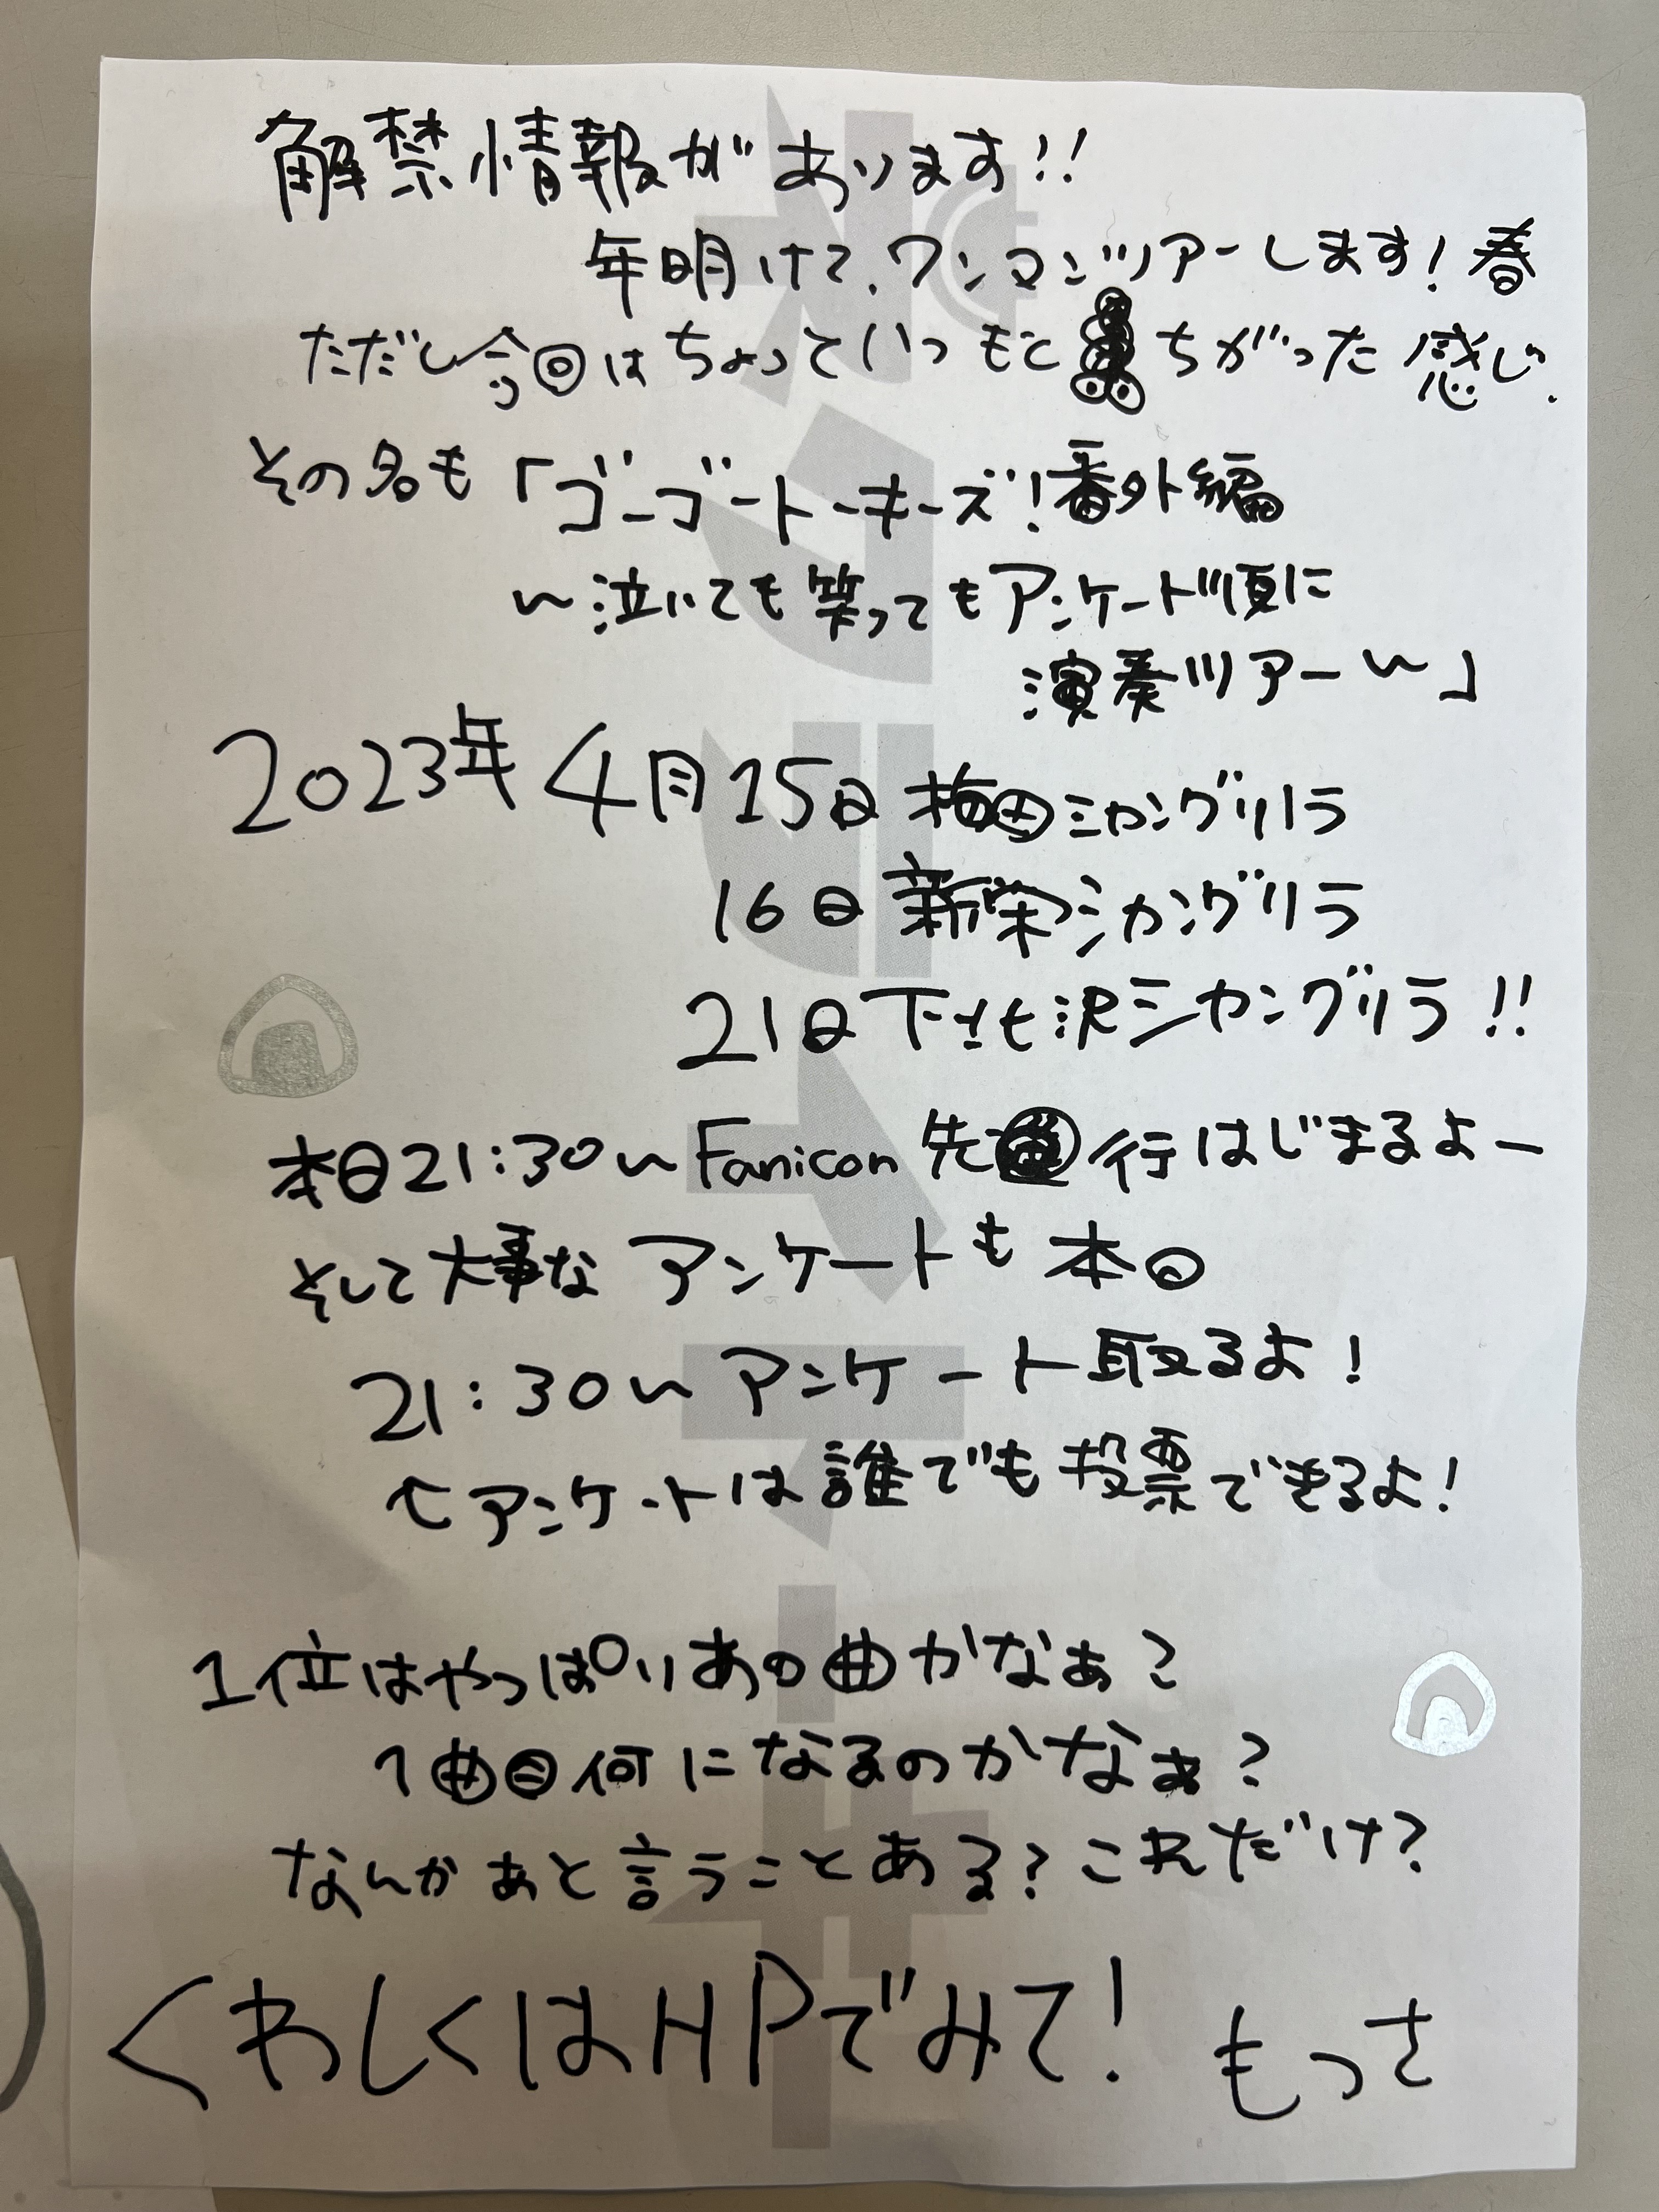 解禁情報があります!!
年明けて、ワンマンツアーします!春
ただし今回はちょっといつもとちがった感じ.
その名も「ゴーゴートーキーズ!番外編
〜泣いても笑ってもアンケート順に
演奏ツアー〜」
2023年4月15日梅田シャングリラ
16日新栄シャングリラ
21日下北沢シャングリラ!!
本日21:30〜Fanicon先行はじまるよー
そして大事なアンケートも本日
21:30〜アンケート取るよ!
↑アンケートは誰でも投票できるよ!
1位はやっぱりあの曲かなぁ?
1曲目何になるのかなぁ?
なんかあと言うことある?これだけ?
くわしくはHPでみて! もっさ